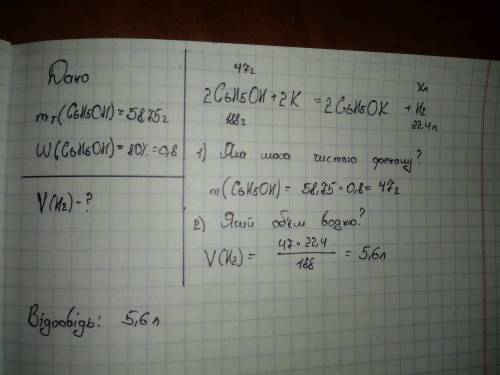 Дано
mт(C6H5OH)=58,75г
W(C6H5OH)=80%=0,8
V(H2)-?
47г Xл
2C6H5OH+2K=2C6H5OK+H2
188г 22.4л
1) Яка маса чистого фенолу?
m(C6H5OH)=58,75*0,8=47г
2) Який об'єм водню?
V(H2)= 47*22,4/188 =5,6л
Відповідь: 5,6л